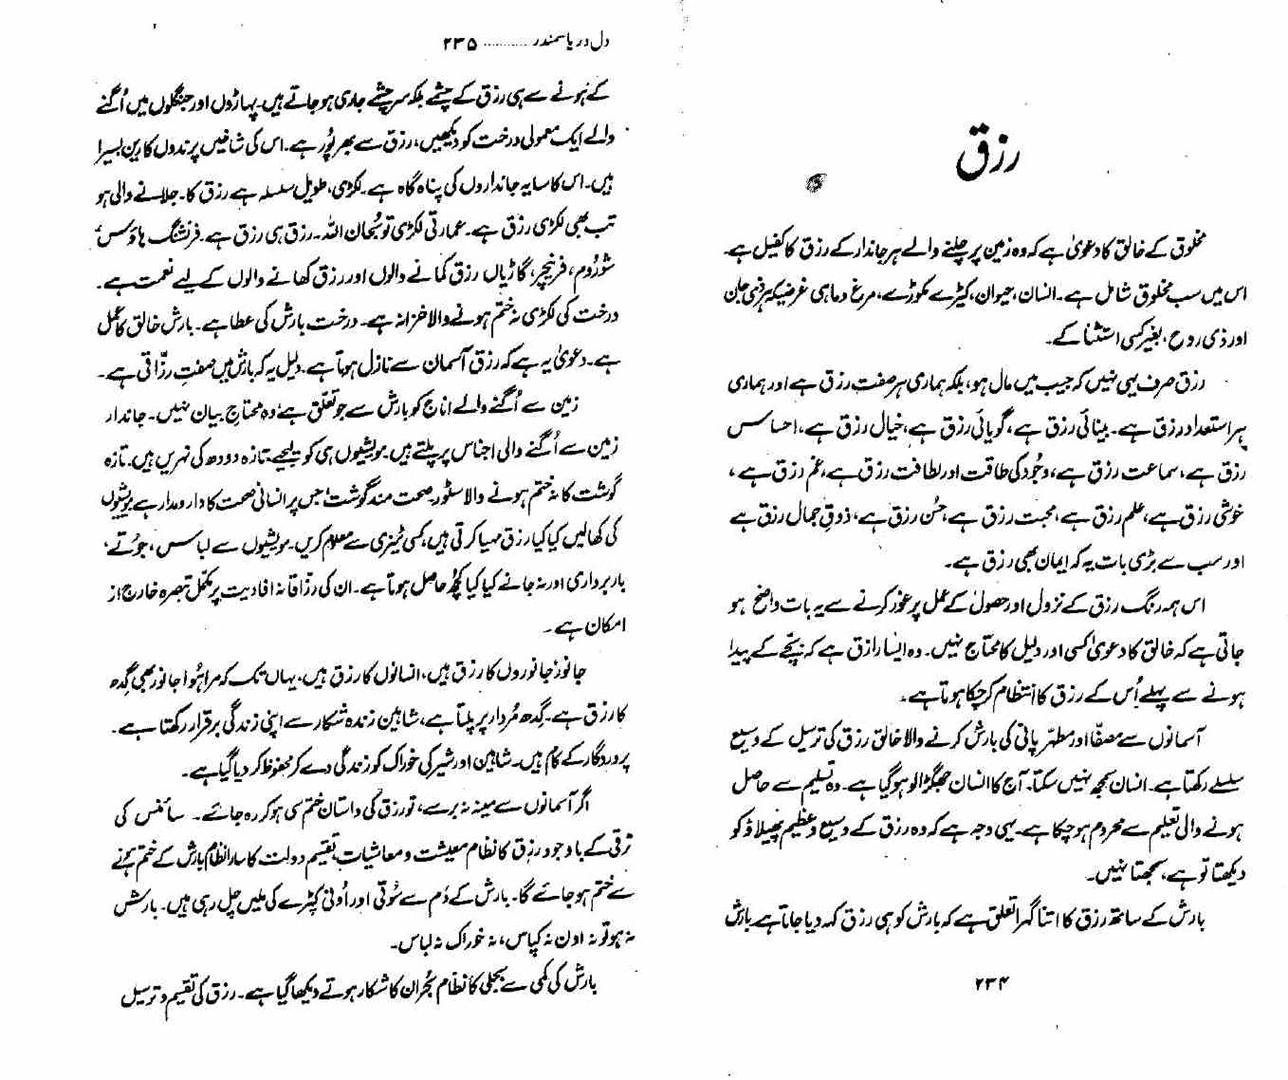 رزق
مخلوق کے خالق کا دعویٰ ہے کہ وہ زمین پر چلنے والے ہر جاندار کے رزق کا کفیل ہے۔
اس میں سب مخلوق شامل ہے۔ انسان، حیوان، کیڑے مکوڑے، مرغ و ماہی غرضیکہ ہر ذی جان
اور ذی روح، بغیر کسی استثنا کے۔
رزق صرف یہی نہیں کہ جیب میں مال ہو، بلکہ ہماری ہر صفت رزق ہے اور ہماری
ہر استعداد رزق ہے۔ بینائی رزق ہے، گویائی رزق ہے، خیال رزق ہے، احساس
رزق ہے، سماعت رزق ہے، وجُود کی طاقت اور لطافت رزق ہے، غم رزق ہے،
خوشی رزق ہے، علم رزق ہے، محبت رزق ہے، حُسن رزق ہے، ذوقِ جمال رزق ہے
اور سب سے بڑی بات یہ کہ ایمان بھی رزق ہے۔
اس ہمہ رنگ رزق کے نزول اور حصول کے عمل پر غور کرنے سے یہ بات واضح ہو
جاتی ہے کہ خالق کا دعویٰ کسی اور دلیل کا محتاج نہیں۔ وہ ایسا رازق ہے کہ بچّے کے پیدا
ہونے سے پہلے اُس کے رزق کا انتظام کر چکا ہوتا ہے۔
آسمانوں سے مصفّا اور مطہّر پانی کی بارش کرنے والا خالق رزق کی ترسیل کے وسیع
سلسلے رکھتا ہے۔ انسان سمجھ نہیں سکتا۔ آج کا انسان جھگڑالو ہو گیا ہے۔ وہ تسلیم سے حاصل
ہونے والی تعلیم سے محروم ہو چکا ہے۔ یہی وجہ ہے کہ وہ رزق کے وسیع و عظیم پھیلاؤ کو
دیکھتا تو ہے، سمجھتا نہیں۔
بارش کے ساتھ رزق کا اتنا گہرا تعلق ہے کہ بارش کو ہی رزق کہہ دیا جاتا ہے بارش
۲۳۴
دل دریا سمندر ........... ۲۳۵
کے ہونے سے ہی رزق کے چشمے بلکہ سرچشمے جاری ہو جاتے ہیں۔ پہاڑوں اور جنگلوں میں اُگنے
والے ایک معمولی درخت کو دیکھیں، رزق سے بھرپُور ہے۔ اس کی شاخیں پرندوں کا رین بسیرا
ہیں۔ اس کا سایہ جانداروں کی پناہ گاہ ہے۔ لکڑی، طویل سلسلہ ہے رزق کا۔ جلانے والی ہو
تب بھی لکڑی رزق ہے۔ عمارتی لکڑی تو سُبحان اللہ۔ رزق ہی رزق ہے۔ فرنشنگ ہاؤس
شو رُوم، فرنیچر، گاڑیاں رزق کمانے والوں اور رزق کھانے والوں کے لیے نعمت ہے۔
درخت کی لکڑی نہ ختم ہونے والا خزانہ ہے۔ درخت بارش کی عطا ہے۔ بارش خالق کا عمل
ہے۔ دعویٰ یہ ہے کہ رزق آسمان سے نازل ہوتا ہے۔ دلیل یہ کہ بارش میں صفتِ رزّاقی ہے۔
زمین سے اُگنے والے اناج کو بارش سے جو تعلق ہے، وہ محتاجِ بیان نہیں۔ جاندار
زمین سے اُگنے والی اجناس پر پلتے ہیں۔ مویشیوں ہی کو لیجیے۔ تازہ دودھ کی نہریں ہیں۔ تازہ
گوشت کا نہ ختم ہونے والا سٹور۔ صحت مند گوشت، جس پر انسانی صحت کا دارومدار ہے مویشیوں
کی کھالیں کیا کیا رزق مہیا کرتی ہیں، کسی ٹینری سے معلوم کریں۔ مویشیوں سے لباس، جُوتے،
باربرداری اور نہ جانے کیا کیا کچھ حاصل ہوتا ہے۔ ان کی رزّاقانہ افادیت پر مکمّل تبصرہ خارج از
امکان ہے۔
جانور جانوروں کا رزق ہیں، انسانوں کا رزق ہیں، یہاں تک کہ مرا ہُوا جانور بھی گِدھ
کا رزق ہے۔ گِدھ مُردار پر پلتا ہے، شاہین زندہ شکار سے اپنی زندگی برقرار رکھتا ہے۔
پروردگار کے کام ہیں۔ شاہین اور شیر کی خوراک کو زندگی دے کر محفوظ کر دیا گیا ہے۔
اگر آسمانوں سے مینہ نہ برسے، تو رزق کی داستان ختم سی ہو کر رہ جائے۔ سائنس کی
ترقی کے باوجود رزق کا نظام معیشت و معاشیات، تقسیمِ دولت کا سارا نظام بارش کے ختم ہونے
سے ختم ہو جائے گا۔ بارش کے دَم سے سُوتی اور اُونی کپڑے کی ملیں چل رہی ہیں۔ بارش
نہ ہو تو نہ اون نہ کپاس، نہ خوراک نہ لباس۔
بارش کی کمی سے بجلی کا نظام بُحران کا شکار ہوتے دیکھا گیا ہے۔ رزق کی تقسیم و ترسیل